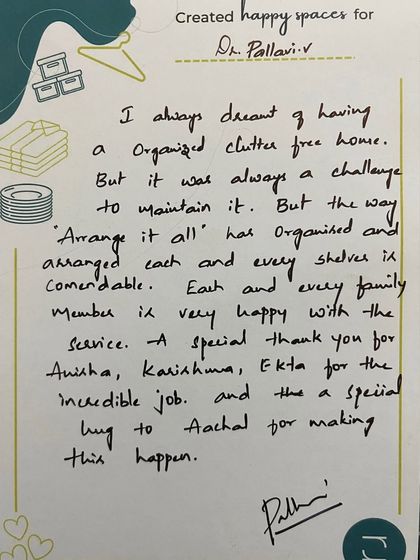 Created happy spaces for
Dr. Pallavi.v
I always dreamt of having
a Organized clutter free home.
But it was always a challenge
to maintain it. But the way
"Arrange it all" has Organised and
arranged each and every shelves is
Comendable. Each and every family
Member is very happy with the
service. A special thank you for
Anisha, Karishma, Ekta for the
incredible job. and the a special
hug to Aachal for making
this happen.